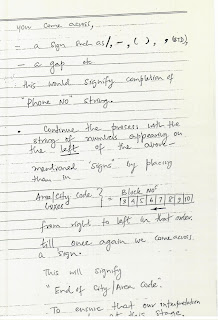 you come across,
- a sign such as /, -, ( ), , (STD),
- a gap etc
this would signify completion of
"Phone No" string.
• Continue the process with the
string of numbers appearing on
the left of the above-
mentioned 'signs' by placing
them in
Area/City code } = Block Nos
boxes 3 4 5 6 7 8 9 10
from right to left in that order
till once again we come across
a sign.
This will signify
"End of City/Area Code".
To ensure that our interpretation
at this stage